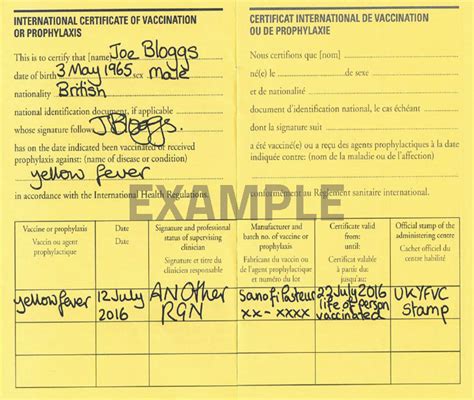 INTERNATIONAL CERTIFICATE OF VACCINATION
OR PROPHYLAXIS
This is to certify that [name] Joe Bloggs
date of birth 3 May 1965 sex male
nationality British
national identification document, if applicable
whose signature follows JBloggs.
has on the date indicated been vaccinated or received
prophylaxis against: (name of disease or condition)
yellow fever
in accordance with the International Health Regulations.
CERTIFICAT INTERNATIONAL DE VACCINATION
OU DE PROPHYLAXIE
Nous certifions que [nom]
né(e) le de sexe
et de nationalité
document d'identification national, le cas échéant
dont la signature suit
a été vacciné(e) ou a reçu des agents prophylactiques à la date
indiquée contre: (nom de la maladie ou de l'affection)
conformément au Règlement sanitaire international.
EXAMPLE
Vaccine or prophylaxis
Vaccin ou agent
prophylactique
Date
Date
Signature and professional
status of supervising
clinician
Signature et titre du
clinicien responsable
Manufacturer and
batch no. of vaccine or
prophylaxis
Fabricans du vaccin ou
de l'agent prophylactique
et numéro du lot
Certificate valid
from:
until:
Certificat valable
à partir du:
jusqu'au:
Official stamp of the
administering centre
Cachet officiel du centre
habilité
yellow fever
12 July
2016
ANOther
RGN
Sanofi Pasteur
xx-xxxx
22 July 2016
life of person
vaccinated
UKYFVC
Stamp